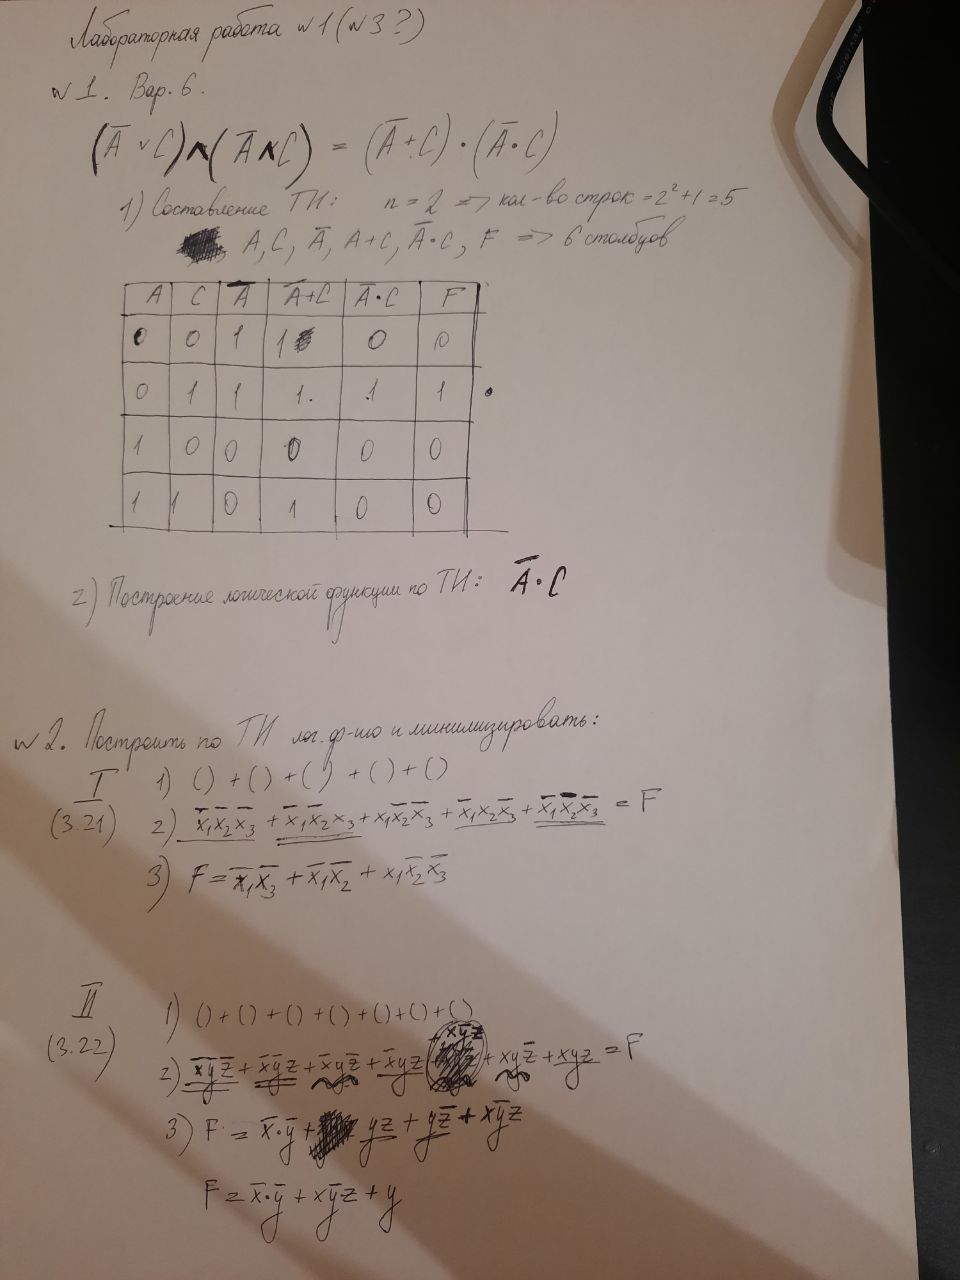 Лабораторная работа №1 (№3?)
№1. Вар. 6.
(A̅ ∨ C) ∧ (A̅ ∧ C) = (A̅ + C) · (A̅ · C)
1) Составление ТИ: n = 2 => кол-во строк = 2²+1 = 5
A, C, A̅, A+C, A̅·C, F => 6 столбцов
A C A̅ A̅+C A̅·C F
0 0 1 1 0 0
0 1 1 1 1 1
1 0 0 0 0 0
1 1 0 1 0 0
2) Построение логической функции по ТИ: A̅·C
№2. Построить по ТИ лог. ф-ию и минимизировать:
I 1) () + () + () + () + ()
(3.21) 2) x̅₁x̅₂x̅₃ + x̅₁x̅₂x₃ + x₁x̅₂x̅₃ + x̅₁x₂x̅₃ + x̅₁x̅₂x̅₃ = F
3) F = x̅₁x̅₃ + x̅₁x̅₂ + x₁x̅₂x̅₃
II 1) () + () + () + () + () + () + ()
(3.22) 2) x̅y̅z̅ + x̅y̅z + x̅yz̅ + x̅yz + xy̅z + xyz̅ + xyz = F
3) F = x̅·y̅ + yz + yz̅ + xy̅z
F = x̅·y̅ + xy̅z + y